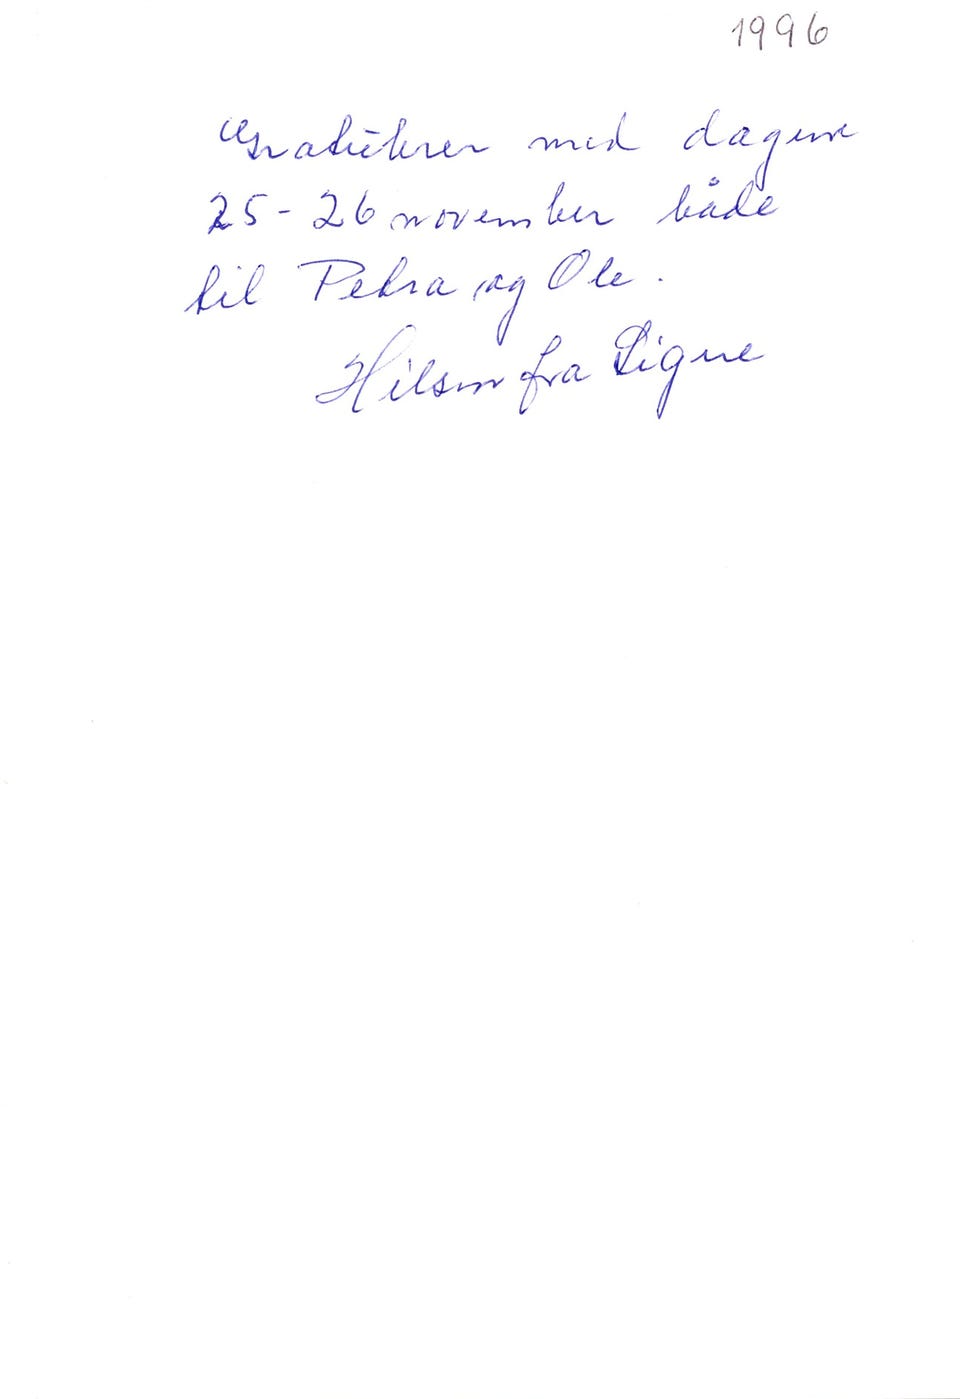 1996
Gratulerer med dagene
25-26 november både
til Petra og Ole.
Hilsen fra Signe